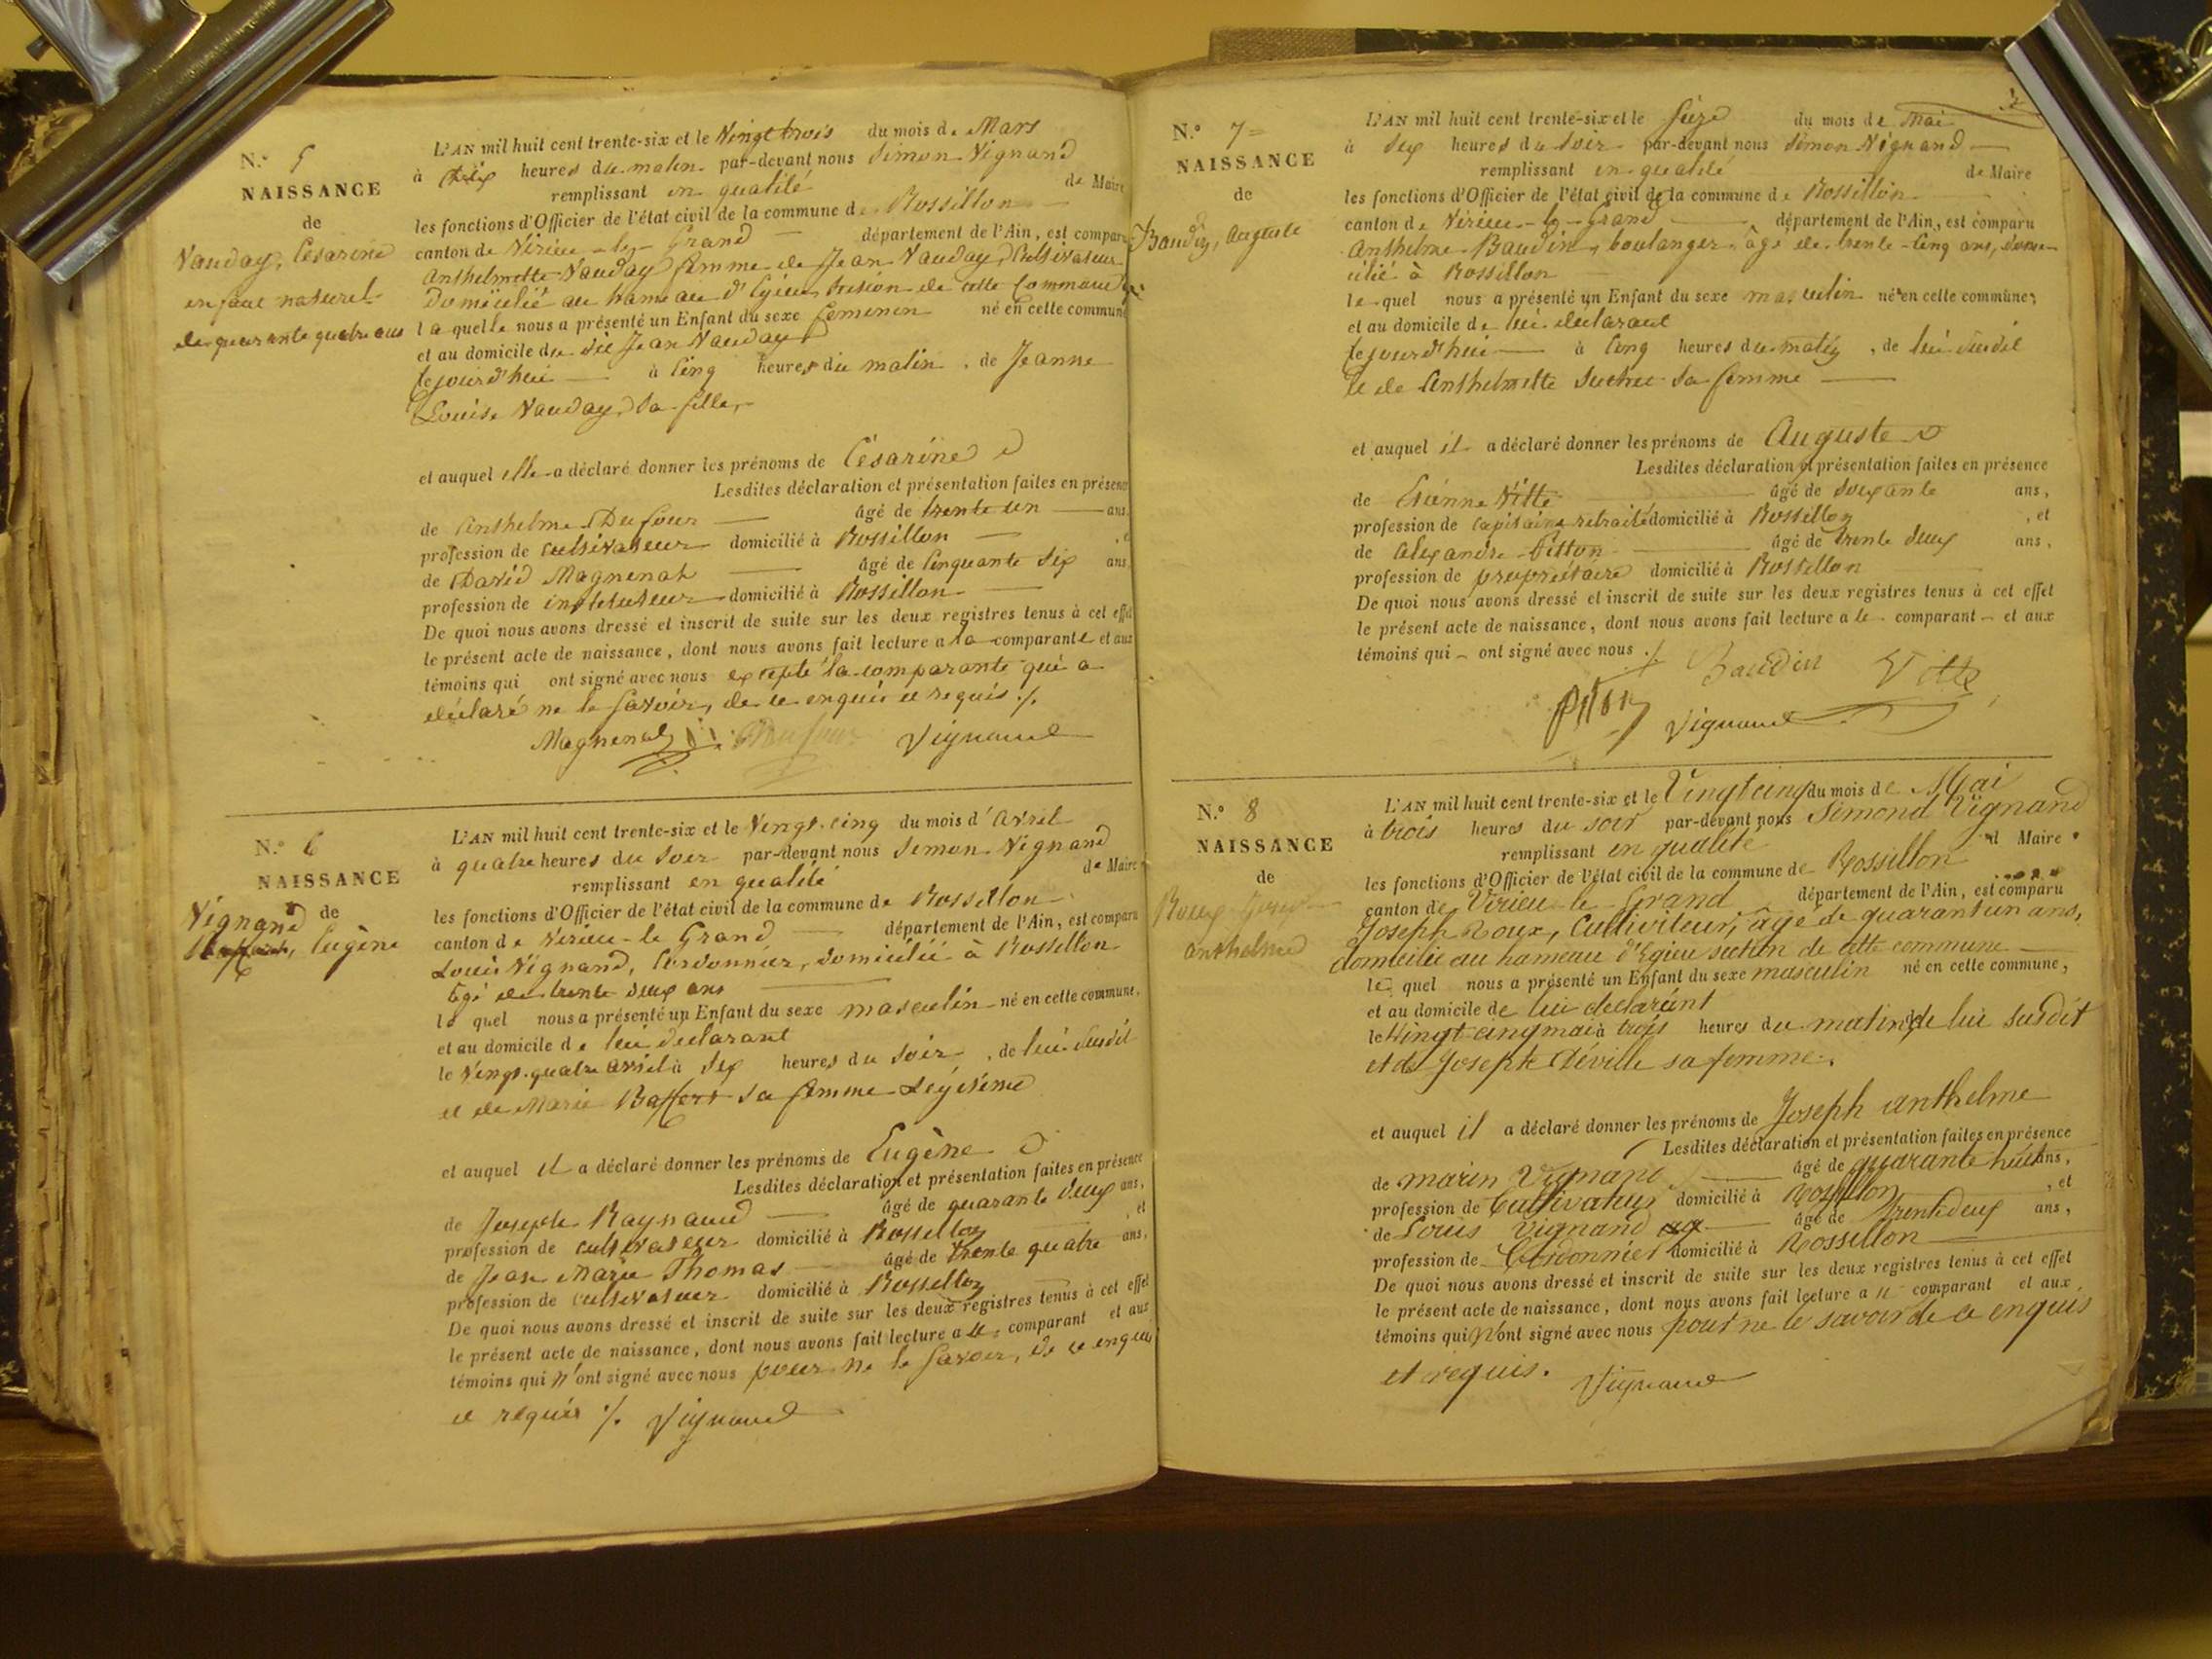 N.º 5
NAISSANCE
de
Vauday, Césarine
enfant naturel
de quarante quatre ans
L'AN mil huit cent trente-six et le Vingt trois du mois de Mars
à dix heures du matin par-devant nous Simon Vignand
remplissant en qualité de Maire
les fonctions d'Officier de l'état civil de la commune de Rossillon
canton de Virieu-le-Grand département de l'Ain, est comparu
Anthelmette Vauday femme de Jean Vauday, Cultivateur
domicilié au hameau d'Egieu, section de cette Commune
laquelle nous a présenté un Enfant du sexe feminin né en cette commune
et au domicile du dit Jean Vauday
cejourd'hui à cinq heures du matin, de Jeanne
Louise Vauday, sa fille,
et auquel elle a déclaré donner les prénoms de Césarine
Lesdites déclaration et présentation faites en présence
de Anthelme Dufour âgé de trente un ans,
profession de cultivateur domicilié à Rossillon
de David Magnenat âgé de cinquante six ans
profession de instituteur domicilié à Rossillon
De quoi nous avons dressé et inscrit de suite sur les deux registres tenus à cet effet
le présent acte de naissance, dont nous avons fait lecture a la comparante et aux
témoins qui ont signé avec nous excepté la comparante qui a
déclaré ne le savoir, de ce enquis et requis ./.
Magnenat Dufour Vignand
N.º 6
NAISSANCE
de
Vignand
Eugène
L'AN mil huit cent trente-six et le Vingt-cinq du mois d'Avril
à quatre heures du Soir par-devant nous Simon Vignand
remplissant en qualité de Maire
les fonctions d'Officier de l'état civil de la commune de Rossillon
canton de Virieu-le-Grand département de l'Ain, est comparu
Louis Vignand, Cordonnier, domicilié à Rossillon
âgé de trente deux ans
lequel nous a présenté un Enfant du sexe masculin né en cette commune,
et au domicile de lui déclarant
le Vingt-quatre avril à six heures du Soir, de lui susdit
et de Marie Baffert sa femme Légitime
et auquel il a déclaré donner les prénoms de Eugène
Lesdites déclaration et présentation faites en présence
de Joseph Raynaud âgé de quarante deux ans,
profession de cultivateur domicilié à Rossillon, et
de Jean Marie Thomas âgé de trente quatre ans,
profession de cultivateur domicilié à Rossillon
De quoi nous avons dressé et inscrit de suite sur les deux registres tenus à cet effet
le présent acte de naissance, dont nous avons fait lecture a le comparant et aux
témoins qui n'ont signé avec nous pour ne le savoir, de ce enquis
et requis ./. Vignand
N.º 7
NAISSANCE
de
Baudin, Auguste
L'AN mil huit cent trente-six et le Seize du mois de Mai
à Six heures du Soir par-devant nous Simon Vignand
remplissant en qualité de Maire
les fonctions d'Officier de l'état civil de la commune de Rossillon
canton de Virieu-le-Grand département de l'Ain, est comparu
Anthelme Baudin, boulanger, âgé de trente-cinq ans, domi-
cilié à Rossillon
lequel nous a présenté un Enfant du sexe masculin né en cette commune,
et au domicile de lui déclarant
cejourd'hui à cinq heures du matin, de lui susdit
et de Anthelmette Suchet sa femme
et auquel il a déclaré donner les prénoms de Auguste
Lesdites déclaration et présentation faites en présence
de Etiénne Vitte âgé de soixante ans,
profession de capitaine retraité domicilié à Rossillon, et
de Alexandre Pitton âgé de trente deux ans,
profession de propriétaire domicilié à Rossillon
De quoi nous avons dressé et inscrit de suite sur les deux registres tenus à cet effet
le présent acte de naissance, dont nous avons fait lecture a le comparant et aux
témoins qui ont signé avec nous ./. Baudin Vitte
Pitton Vignand
N.º 8
NAISSANCE
de
Roux Joseph
anthelme
L'AN mil huit cent trente-six et le Vingt cinq du mois de Mai
à trois heures du soir par-devant nous Simond Vignand
remplissant en qualité d Maire
les fonctions d'Officier de l'état civil de la commune de Rossillon
canton de Virieu-le-Grand département de l'Ain, est comparu
Joseph Roux, Cultiviteur, âgé de quarant un ans,
domicilié au hameau d'Egieu section de cette commune
lequel nous a présenté un Enfant du sexe masculin né en cette commune,
et au domicile de lui declarant
le Vingt cinq mai à trois heures du matin de lui susdit
et de Joseph Déville sa femme.
et auquel il a déclaré donner les prénoms de Joseph anthelme
Lesdites déclaration et présentation faites en présence
de marin Vignand âgé de quarante huit ans,
profession de Cultivateur domicilié à Rossillon, et
de Louis Vignand âgé de trente deux ans,
profession de Cordonnier domicilié à Rossillon
De quoi nous avons dressé et inscrit de suite sur les deux registres tenus à cet effet
le présent acte de naissance, dont nous avons fait lecture a le comparant et aux
témoins qui n'ont signé avec nous pour ne le savoir de ce enquis
et requis. Vignand